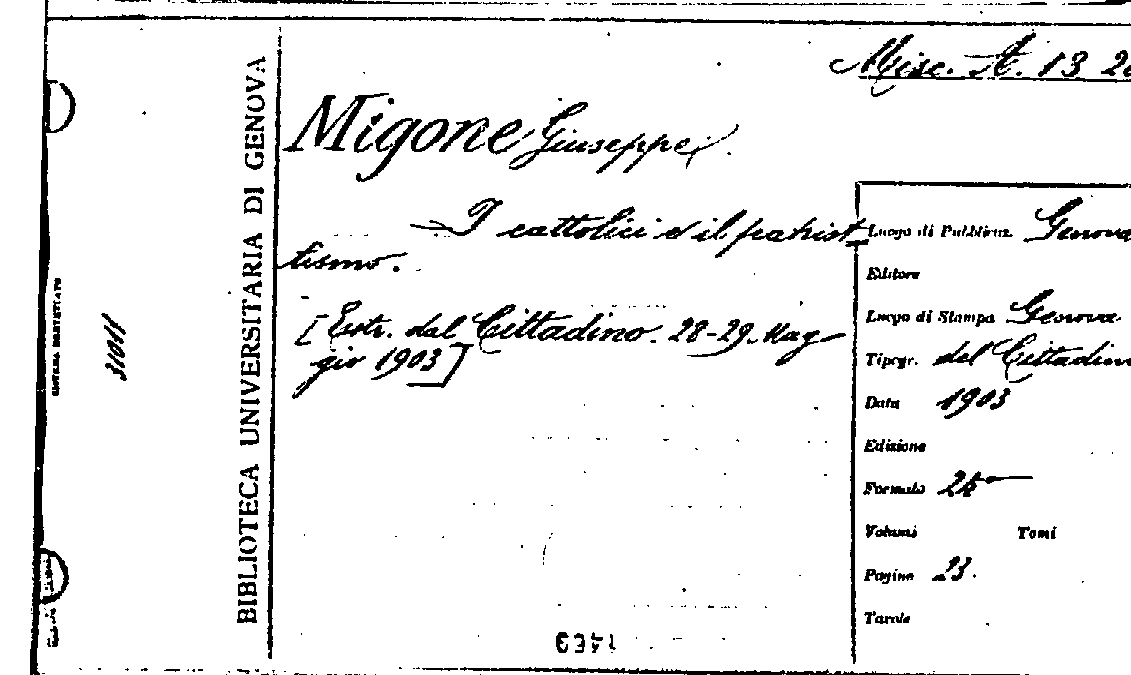 Misc. A. 13 2
BIBLIOTECA UNIVERSITARIA DI GENOVA
31011
Migone Giuseppe
I cattolici e il patriot
tismo.
[Estr. dal Cittadino. 28-29. Mag
gio 1903]
Luogo di Pubblicaz. Genova
Editore
Luogo di Stampa Genova
Tipogr. del Cittadin
Data 1903
Edizione
Formato 24°
Volumi Tomi
Pagine 23.
Tavole